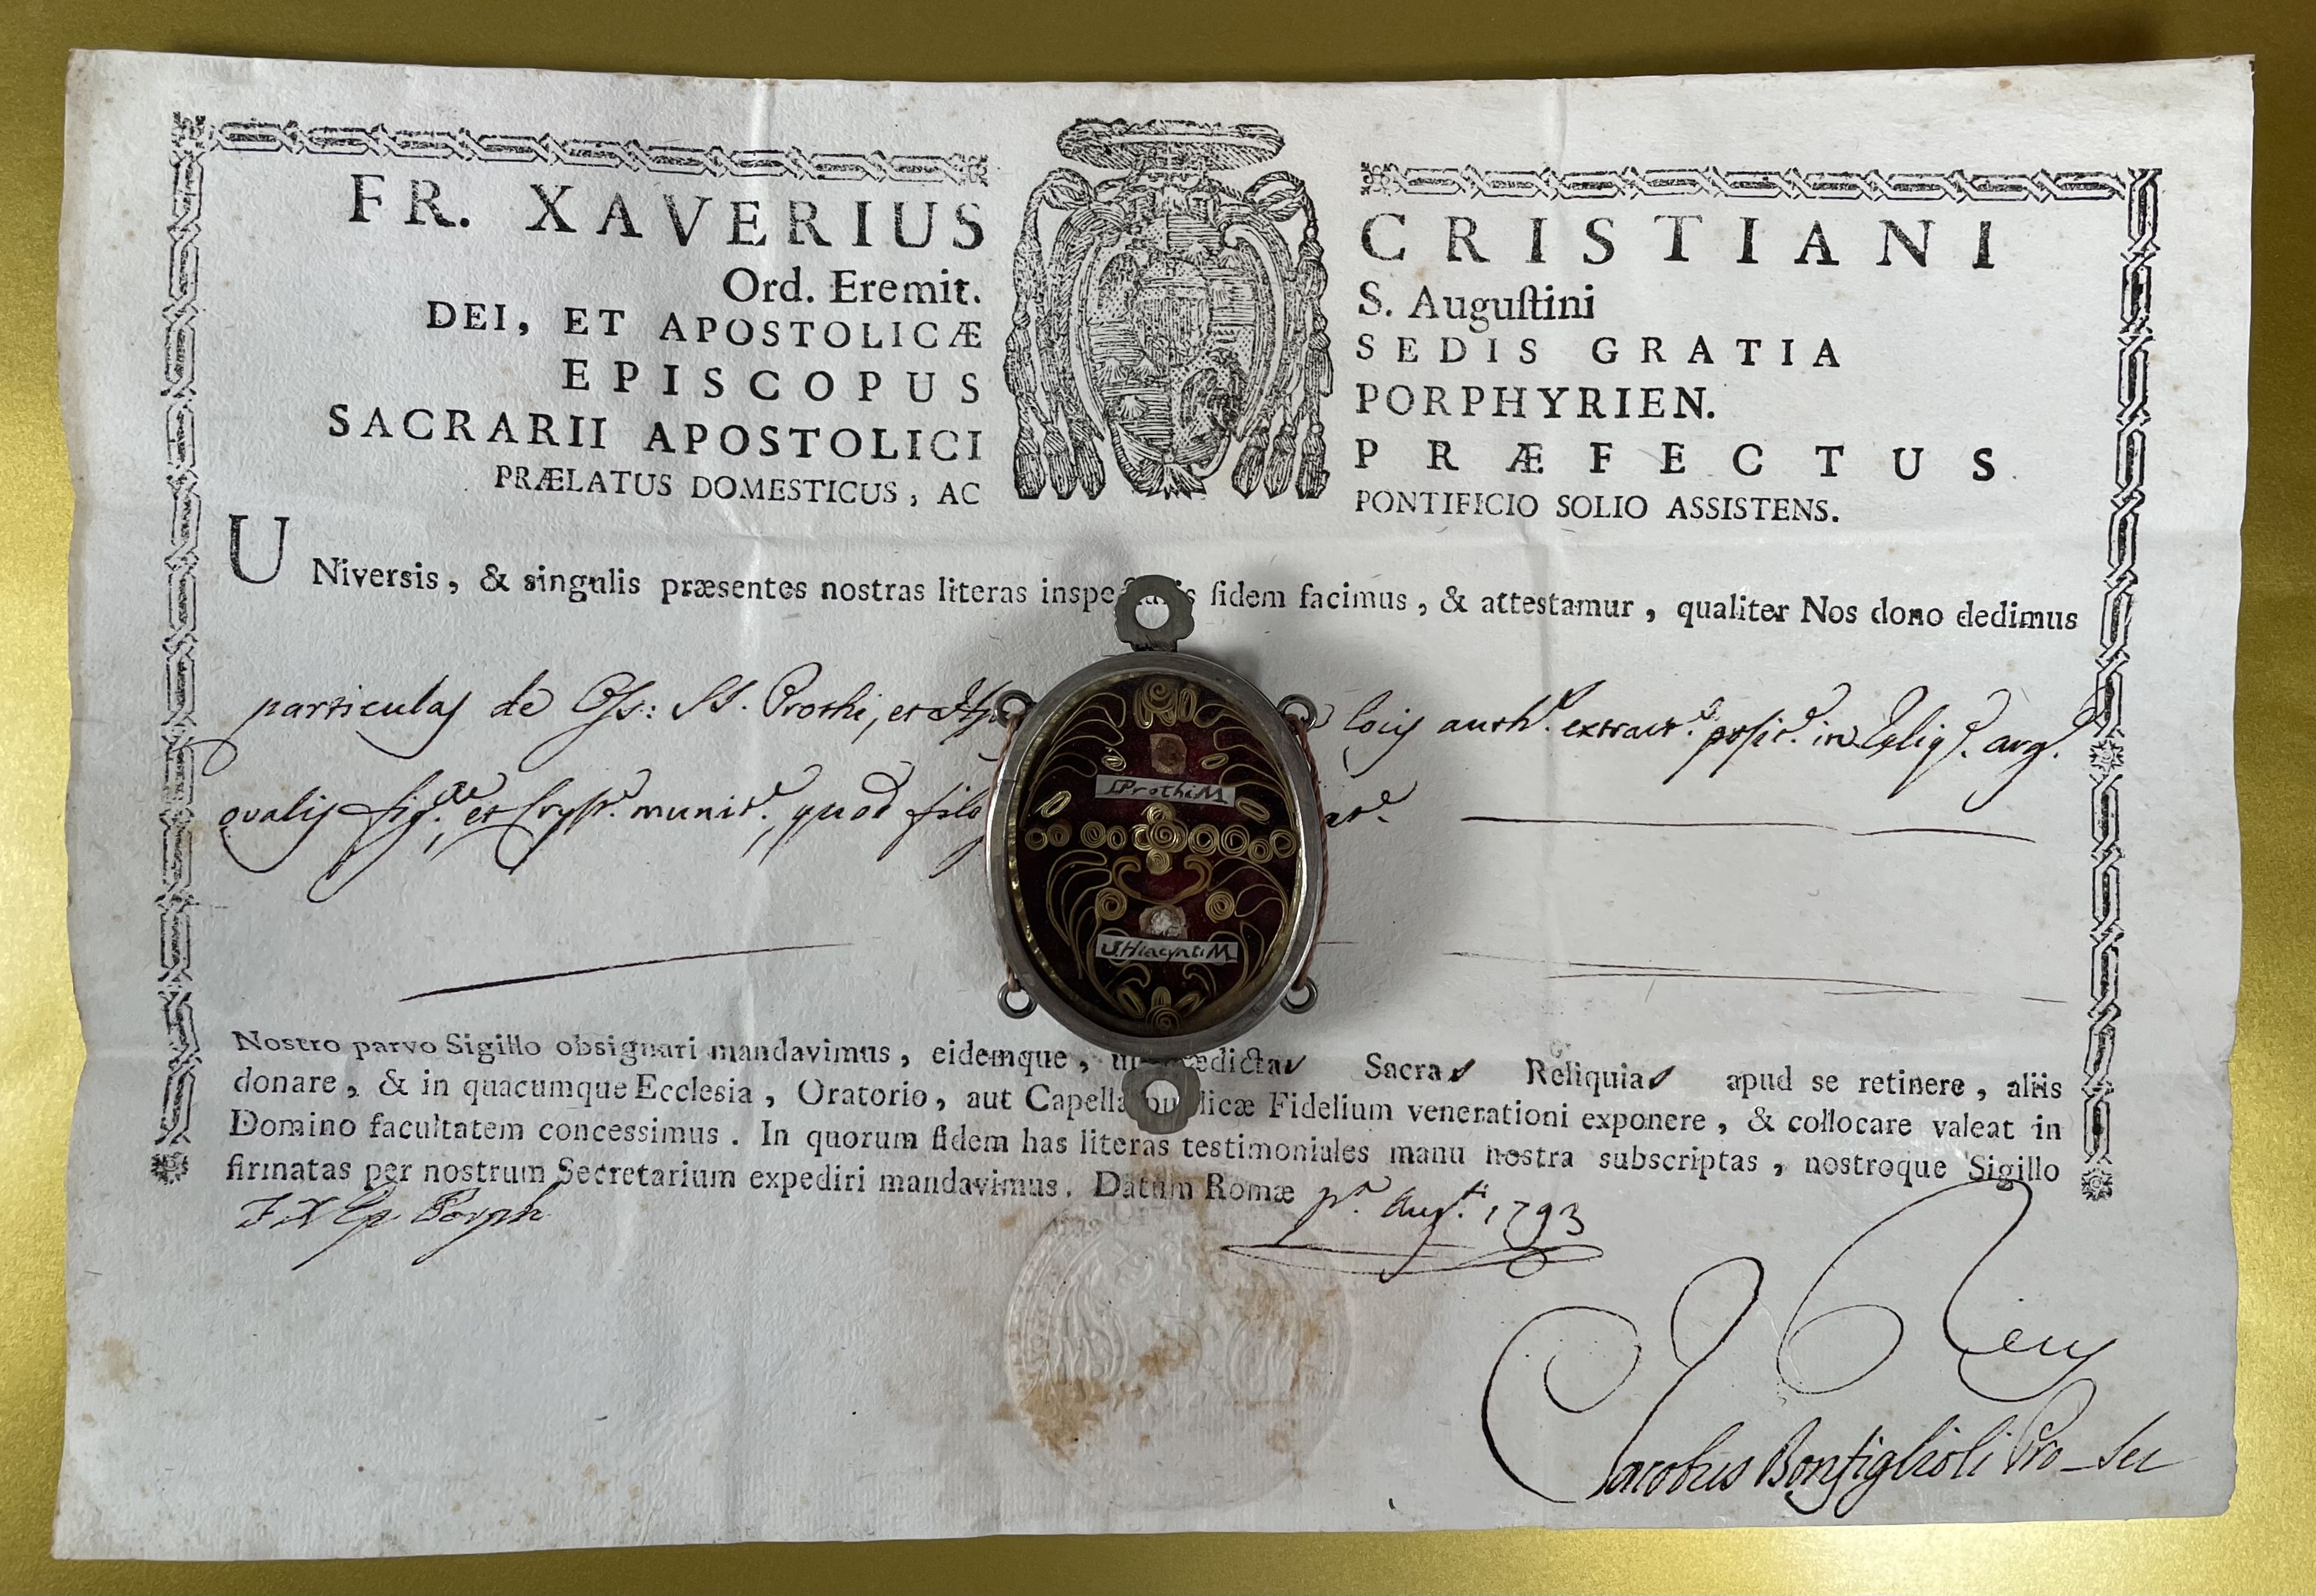 FR. XAVERIUS CRISTIANI
Ord. Eremit. S. Auguſtini
DEI, ET APOSTOLICÆ SEDIS GRATIA
EPISCOPUS PORPHYRIEN.
SACRARII APOSTOLICI PRÆFECTUS
PRÆLATUS DOMESTICUS, AC PONTIFICIO SOLIO ASSISTENS.
UNiversis, & singulis præsentes nostras literas fidem facimus, & attestamur, qualiter Nos dono dedimus
particulas de Oss: SS. Prothi, et locis auth. extract. posit. in Reliq. arg.
ovalis fig. et Cryst. munit. quod filo
S Prothi M
S. Hiacynti M
Nostro parvo Sigillo obsignari mandavimus, eidemque, Sacras Reliquias apud se retinere, aliis
donare, & in quacumque Ecclesia, Oratorio, aut Capella publicæ Fidelium venerationi exponere, & collocare valeat in
Domino facultatem concessimus. In quorum fidem has literas testimoniales manu nostra subscriptas, nostroque Sigillo
firmatas per nostrum Secretarium expediri mandavimus. Datum Romæ pa. Augti. 1793
F X Ep Porph
Jacobus Bonfiglioli Pro-Sec